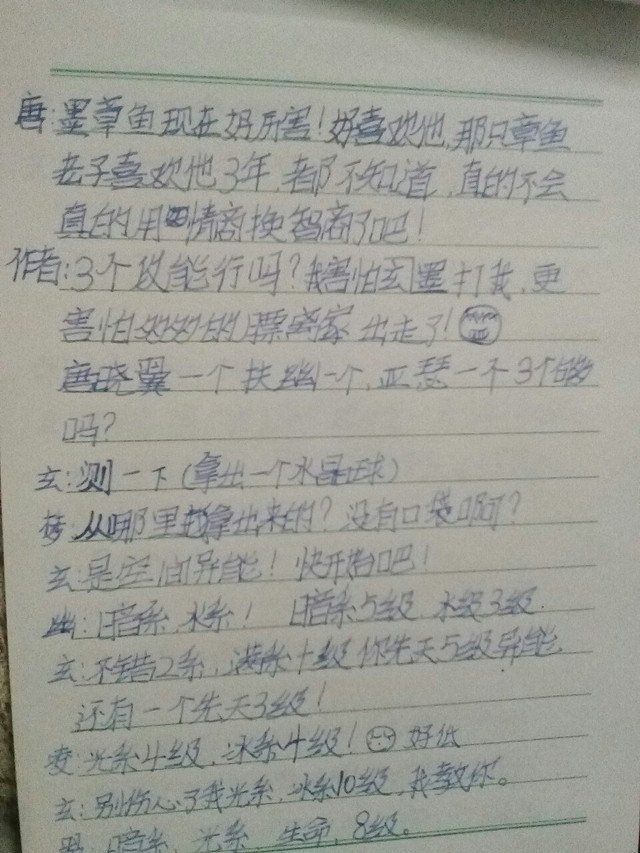 唐:墨章鱼现在好厉害!好喜欢他,那只章鱼
老子喜欢他3年,都不知道,真的不会
真的用情商换智商了吧!
作者:3个技能行吗?我害怕玄墨打我,更
害怕的票离家出走了!
唐晓翼一个扶幽一个,亚瑟一个3个够
吗?
玄:测一下(拿出一个水晶球)
从哪里拿出来的?没有口袋啊?
玄:是空间异能!快开始吧!
幽:暗系,水系!暗系5级,水级3级.
玄:不错2系,满系十级你先天5级异能.
还有一个先天3级!
凌:光系4级,冰系4级!好低
玄:别伤心了我光系,冰系10级,我教你。
墨:暗系,光系,生命,8级。